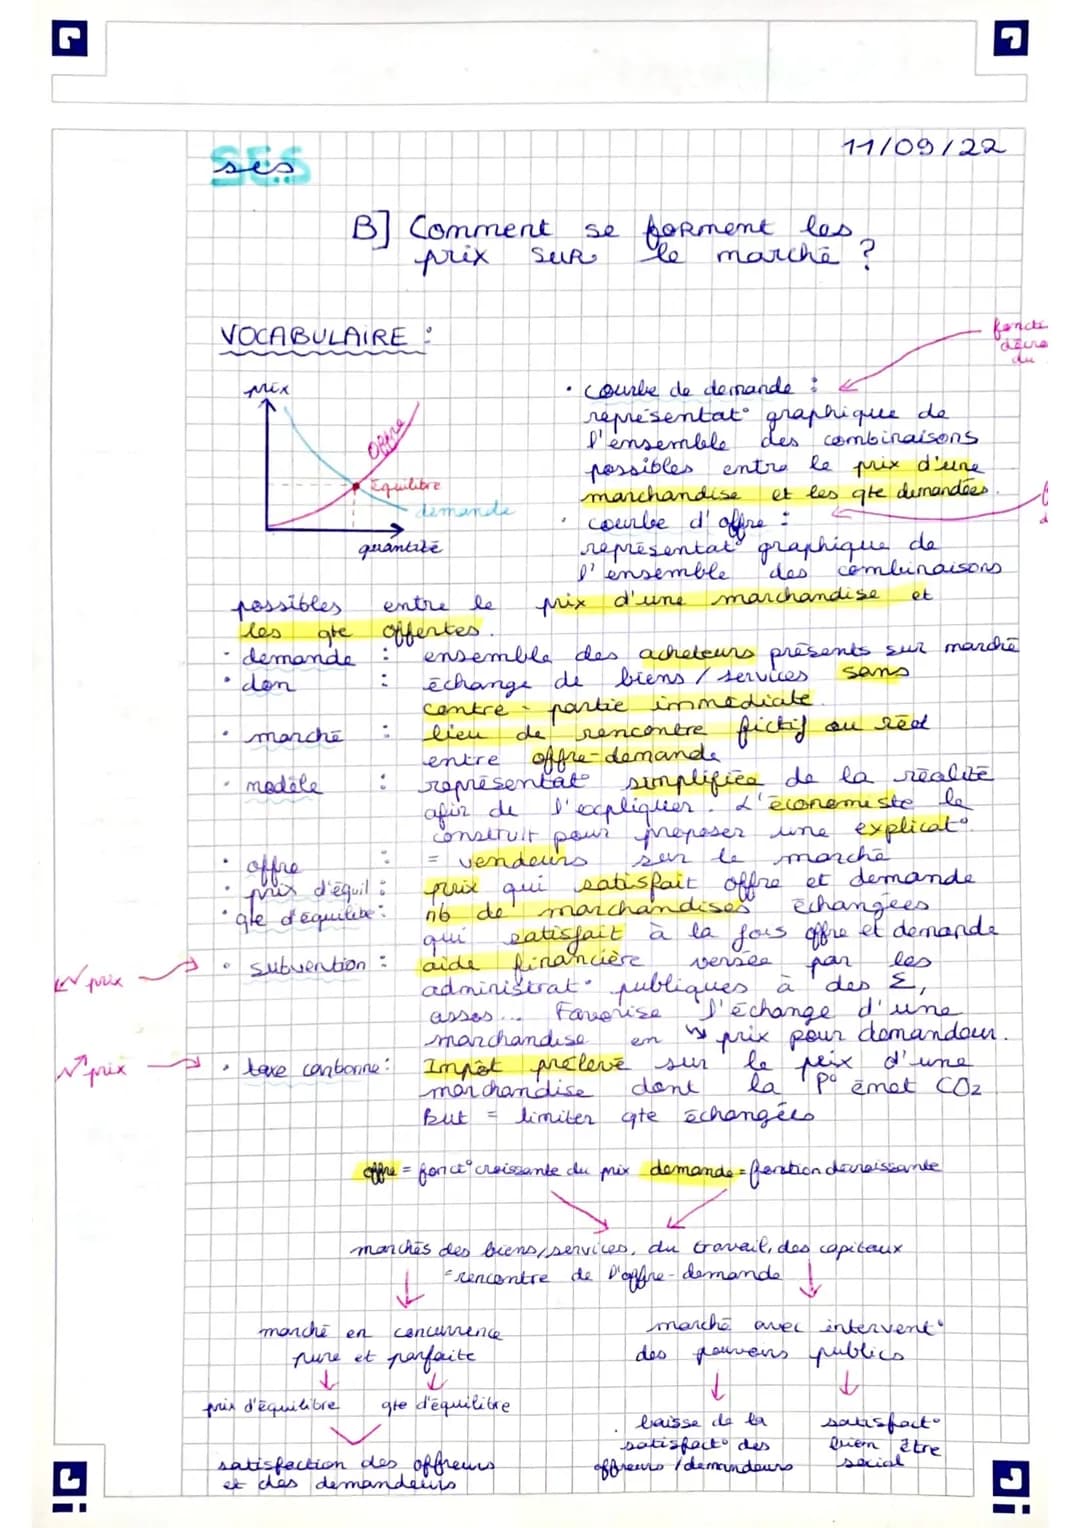 ses
11/09/22
B] Comment se forment les
prix sur le marché ?
VOCABULAIRE :
prix
Offre
Equilibre
demande
quantité
foncti
décro
du
• courbe de demande :
représentat° graphique de
l'ensemble des combinaisons
possibles entre le prix d'une
marchandise et les qte demandées.
• courbe d'offre :
représentat° graphique de
l'ensemble des combinaisons
possibles entre le prix d'une marchandise et
les qte offertes.
• demande : ensemble des acheteurs présents sur marché
• don : échange de biens / services sans
contre-partie immédiate.
• marché : lieu de rencontre fictif ou réel
entre offre-demande
• modèle : représentat° simplifiée de la réalité
afin de l'expliquer. L'économiste le
construit pour proposer une explicat°.
• offre : = vendeurs sur le marché
• prix d'équil : prix qui satisfait offre et demande
• qte d'équilibe : nb de marchandises échangées
qui satisfait à la fois offre et demande
↘ prix
• subvention : aide financière versée par les
administrat° publiques à des Σ,
assos... Favorise l'échange d'une
marchandise en ↘ prix pour demandeur.
↗ prix
• taxe carbonne : Impôt prélevé sur le prix d'une
marchandise dont la P° émet CO2
But = limiter qte échangées
offre = fonct° croissante du prix demande = fonction décroissante
marchés des biens/services, du travail, des capitaux
= rencontre de l'offre-demande
marché en concurrence
pure et parfaite
marché avec intervent°
des pouvoirs publics
prix d'équilibre
qte d'équilibre
baisse de la
satisfact° des
offreurs / demandeurs
satisfact°
bien être
social
satisfaction des offreurs
et des demandeurs